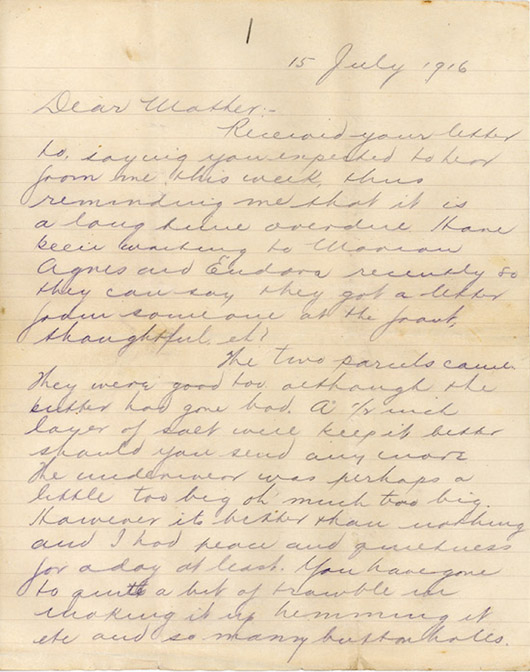 1
15 July 1916
Dear Mother:-
Received your letter
to. saying you expected to hear
from me this week, thus
reminding me that it is
a long time overdue. Have
been writing to Marion
Agnes and Eudora recently so
they can say they got a letter
from someone at the front,
thoughtful eh?
The two parcels came
They were good too although the
butter had gone bad. A 1/2 inch
layer of salt will keep it better
should you send any more
The underwear was perhaps a
little too big oh much too big.
However its better than nothing
and I had peace and quietness
for a day at least. You have gone
to quite a bit of trouble in
making it up hemming it
etc and so many buttonholes.